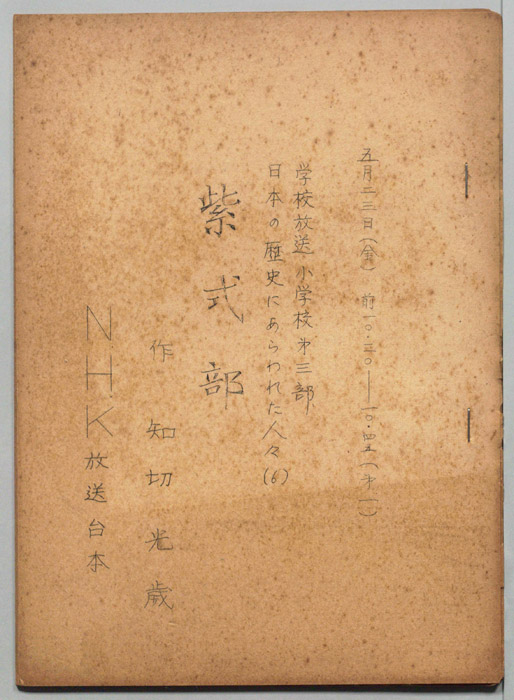 五月二三日(金) 前一〇・三〇―一〇・四五(㐧一)
学校放送 小学校㐧三部
日本の歴史にあらわれた人々(6)
紫式部
作 知切光歳
N.H.K 放送台本